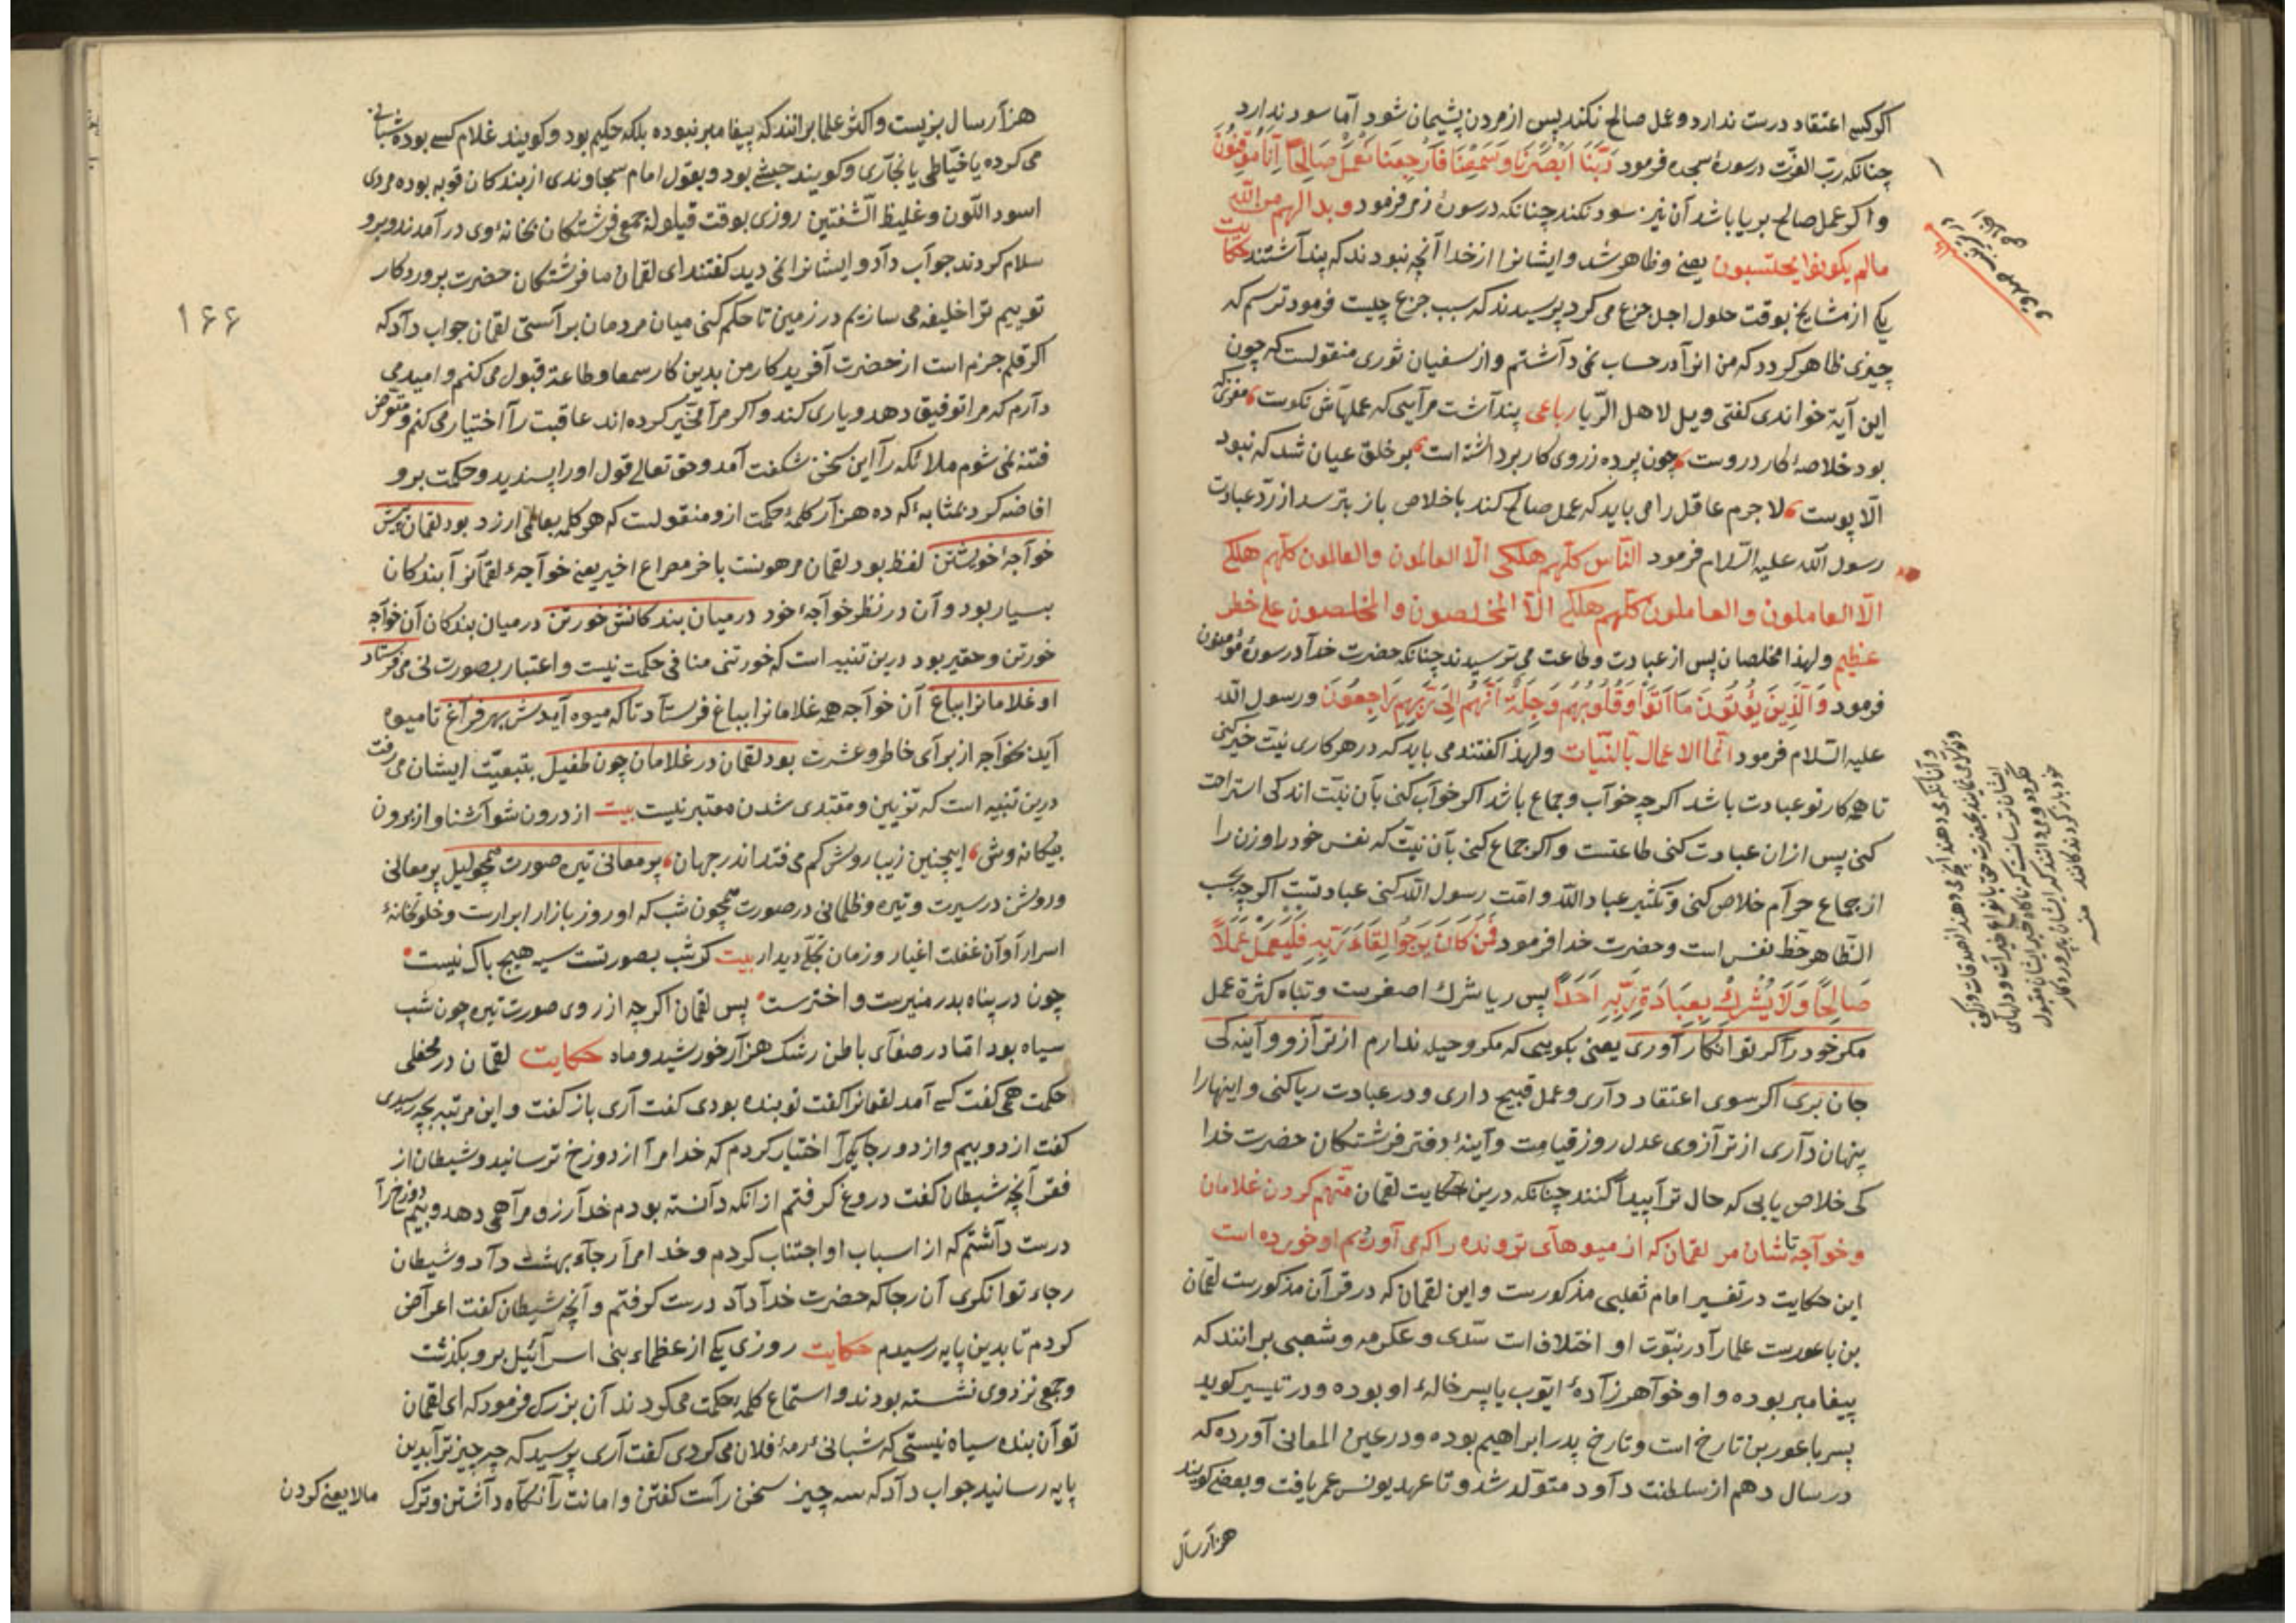 اکر کسی اعتقاد درست ندارد و عمل صالح نکند پس از مردن پشیمان شود آما سود ندارد
چنانکه رب العزّت در سورهٔ سجده فرمود رَبَّنَا اَبْصَرْنَا وَسَمِعْنَا فَارْجِعْنَا نَعْمَلْ صَالِحًا اِنَّا مُوقِنُونَ
و اکر عمل صالح بریا باشد آن نیز سود نکند چنانکه در سورهٔ زمر فرمود و بدا لهم من الله
مالم یکونوا یحتسبون یعنی و ظاهر شد و ایشانرا از خدا آنچه نبودند که پندآشتند حکایت
یکی از مشایخ بوقت حلول اجل جزع می کرد پرسیدند که سبب جزع چیست فرمود ترسم که
چیزی ظاهر کردد که من انرآ در حساب نمی دآشتم و از سفیان ثوری منقولست که چون
این آیة خواندی کفتی ویل لاهل الرّیا رباعی پندآشت مرآیی که عملهآش نکوست مغزی که
بود خلاصهٔ کار دروست چون پرده ز روی کار برداشته است بر خلق عیان شد که نبود
الّا پوست لا جرم عاقل را می باید که عمل صالح کند باخلاص باز بترسد از ردّ عبادت
رسول الله علیه السّلام فرمود النّاس کلّهم هلکی الّا العالمون والعالمون کلّهم هلکی
الّا العاملون والعاملون کلّهم هلکی الّا المخلصون والمخلصون علی خطر
عظیم ولهذا مخلصان پس از عبادت و طاعت می ترسیدند چنانکه حضرت خدآ در سورهٔ مؤمنون
فرمود وَالَّذِينَ يُؤْتُونَ مَا اٰتَوْا وَقُلُوبُهُمْ وَجِلَةٌ اَنَّهُمْ اِلَى رَبِّهِمْ رَاجِعُونَ و رسول الله
علیه السّلام فرمود انّما الاعمال بالنّیّات ولهذا کفتند می باید که در هر کاری نیّت خیر کنی
تا همه کار تو عبادت باشد اکرچه خوآب و جماع باشد اکر خوآب کنی بآن نیّت اندکی استراحت
کنی پس از ان عبادت کنی طاعتست و اکر جماع کنی بآن نیّت که نفس خود را و زن را
از جماع حرآم خلاص کنی و تکثیر عباد الله و امّت رسول الله کنی عبادتست اکرچه بحسب
الظّاهر حظّ نفس است و حضرت خدا فرمود فَمَنْ كَانَ يَرْجُوا لِقَاءَ رَبِّهِ فَلْيَعْمَلْ عَمَلًا
صَالِحًا وَلَا يُشْرِكْ بِعِبَادَةِ رَبِّهِ اَحَدًا پس ریا شرك اصغرست و تباه کثرة عمل
مکر خود را کر تو انکار آوری یعنی بکویی که مکر و حیله ندارم از ترآزو و آینه کی
جان بری اکر سوی اعتقاد دآری و عمل قبیح داری و در عبادت ریا کنی و اینهارا
پنهان دآری از ترآزوی عدل روز قیامت و آینهٔ دفتر فرشتکان حضرت خدا
کی خلاص یابی که حال ترآ پیدآ کنند چنانکه درین حکایت لقمان متّهم کردن غلامان
و خوآجه تاشان مر لقمان که از میوهآی تروندہ را که می آوریم او خورده است
این حکایت در تفسیر امام ثعلبی مذکورست و این لقمان که در قرآن مذکورست لقمان
بن باعورست علمارآ در نبوّت او اختلافات سدّی و عکرمه و شعبی برانند که
پیغامبر بوده و او خوآهرزآدهٔ ایّوب یا پسر خالهٔ او بوده و در تیسیر کوید
پسر باعور بن تارخ است و تارخ پدر ابراهیم بوده و در عین المعانی آورده که
در سال دهم از سلطنت دآود متوّلد شد و تا عهد یونس عمر یافت و بعضی کویند
هزآر سال
و آنانکه می دهند آنچه می دهند از صدقات و زکوة
خود باز کردند کانند منه
۱۶۶
هزآر سال بزیست و اکثر علما برانند که پیغامبر نبوده بلکه حکیم بود و کویند غلام کسی بوده شبانی
می کرده یا خیّاطی یا نجّآری و کویند حبشی بود و بقول امام سجاوندی از بندکان نوبه بوده مردی
اسود اللّون و غلیظ الشّفتین روزی بوقت قیلوله جمعی فرشتکان بخانهٔ وی در آمدند و برو
سلام کردند جوآب دآد و ایشانرا نمی دید کفتند ای لقمان ما فرشتکان حضرت پروردکار
توییم ترآ خلیفه می سازیم در زمین تا حکم کنی میان مردمان برآستی لقمان جواب دآد که
اکر قلم جزم است از حضرت آفریدکار من بدین کار سمعا و طاعة قبول می کنم و امید می
دآرم که مرا توفیق دهد و یاری کند و اکر مرآ مخیّر کرده اند عاقبت رآ اختیار می کنم و متعرّض
فتنه نمی شوم ملائکه رآ این سخن شکفت آمد و حق تعالی قول اورا پسندید و حکمت برو
افاضه کرد بمثابهٔ که ده هزآر کلمهٔ حکمت ازو منقولست که هر کلمه بعالمی ارزد بود لقمان پیش
خوآجهٔ خویشتن لفظ بود لقمان مرهونست باخر مصراع اخیر یعنی خوآجهٔ لقمانرآ بندکان
بسیار بود و آن در نظر خوآجهٔ خود در میان بندکانش خورتن در میان بندکان آن خوآجه
خورتن و حقیر بود درین تنبیه است که خورتنی منافی حکمت نیست و اعتبار بصورت نی می فرستاد
او غلامانرا بباغ آن خوآجه همه غلامانرا بباغ فرستآد تا که میوه آیدش بهر فرآغ تا میوه
آید بخوآجه از برآی خاطر و عشرت بود لقمان در غلامان چون طفیل بتبعیّت ایشان می رفت
درین تنبیه است که تزیین و مقتدی شدن معتبر نیست بیت از درون شو آشنا و از برون
بیکانه وش اینچنین زیبا روش کم می فتد اندر جهان پر معانی تیره صورت همچو لیل پر معالی
و روشن در سیرت و تیره و ظلمانی در صورت همچون شب که او روز بازار ابرارت و خلوتخانهٔ
اسرار و آن غفلت اغیار و زمان تجلّی دیدار بیت کر شب بصورتست سیه هیچ باك نیست
چون در پناه بدر منیرست و اخترست پس لقمان اکرچه از روی صورت تیره چون شب
سیاه بود امّا در صفآی باطن رشك هزآر خورشید و ماه حکایت لقمان در محفلی
حکمت همی کفت کسی آمد لقمانرا کفت تو بنده بودی کفت آری باز کفت و این مرتبه بچه رسیدی
کفت از دو بیم و از دو رجا یکی رآ اختیار کردم که خدا مرآ از دوزخ ترسانید و شیطان از
فقر آنچه شیطان کفت دروغ کرفتم از انکه دآنسته بودم خدآ رزق مرآ همی دهد و بیم دوزخ رآ
درست دآشتم که از اسباب او اجتناب کردم و خدا مرآ رجآء بهشت دآد و شیطان
رجاء توانکری آن رجا که حضرت خدآ دآد درست کرفتم و آنچه شیطان کفت اعرآض
کردم تا بدین پایه رسیدم حکایت روزی یکی از عظماء بنی اسرآئیل برو بکذشت
و جمعی نزد وی نشسته بودند و استماع کلمهٔ حکمت می کردند آن بزرك فرمود که ای لقمان
تو آن بنده سیاه نیستی که شبانی رمهٔ فلان می کردی کفت آری پرسید که چه چیز ترآ بدین
پایه رسانید جواب دآد که سه چیز سخن رآست کفتن و امانت رآ نکاه دآشتن و ترك مالا یعنی کردن